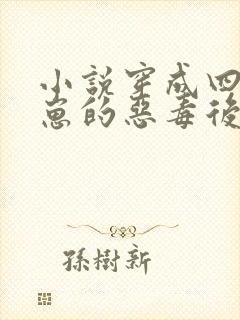 小說穿成四
崽的惡毒後
孫樹新